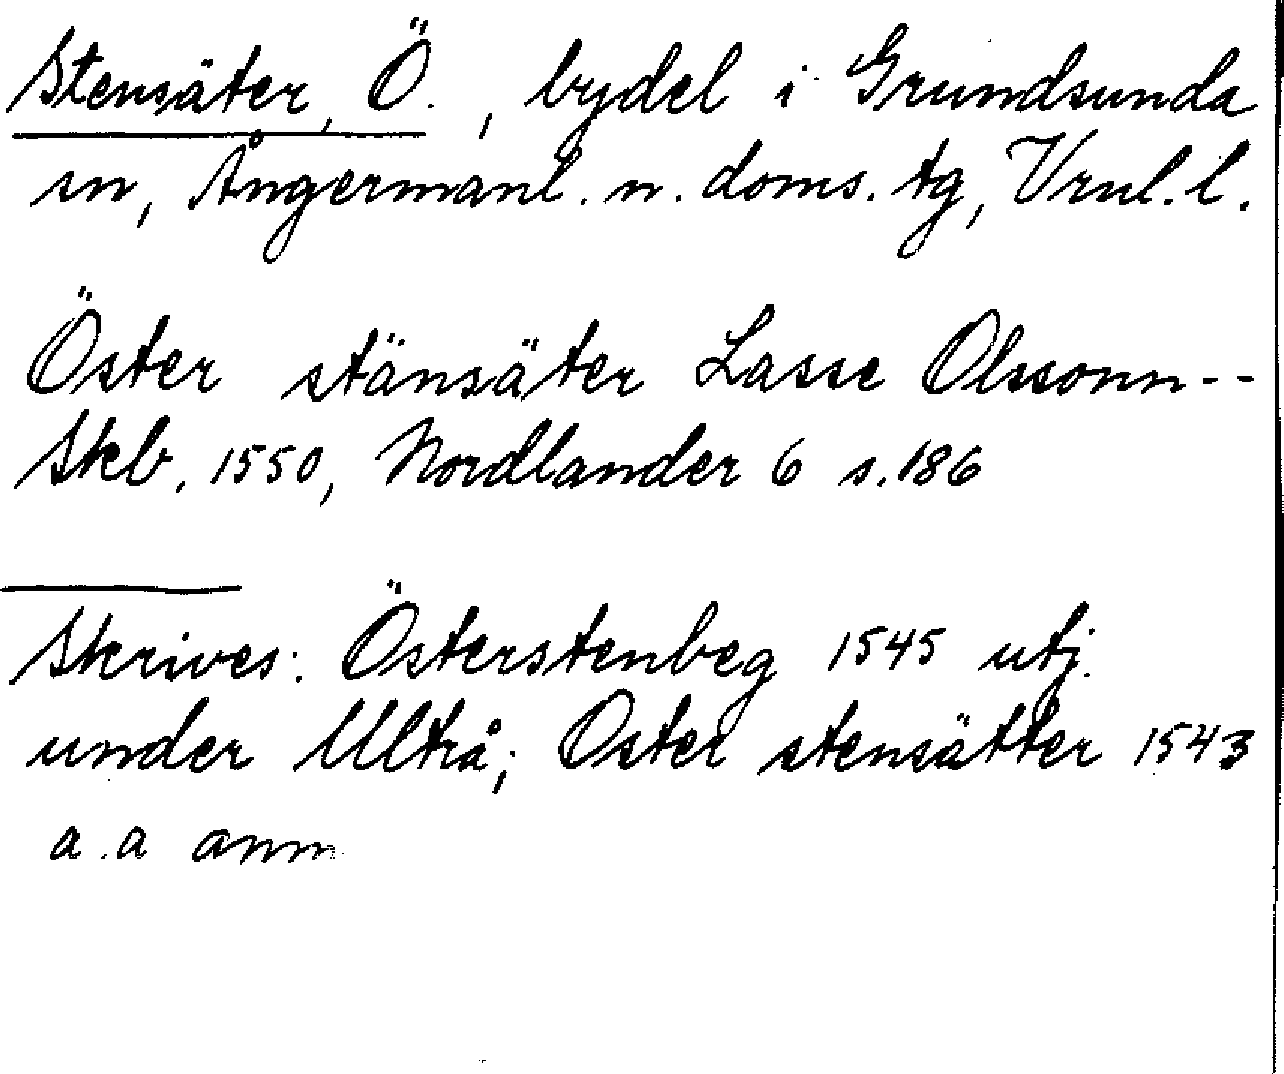 Stensäter, Ö., bydel i Grundsunda
sn, Ångermanl. n. doms. tg, Vrnl. l.
Öster stänsäter Lasse Olssonn--
Skb. 1550, Nordlander 6 s. 186
Skrives: Österstenbeg 1545 utj.
under Ultrå; Öster stensätter 1543
a.a anm